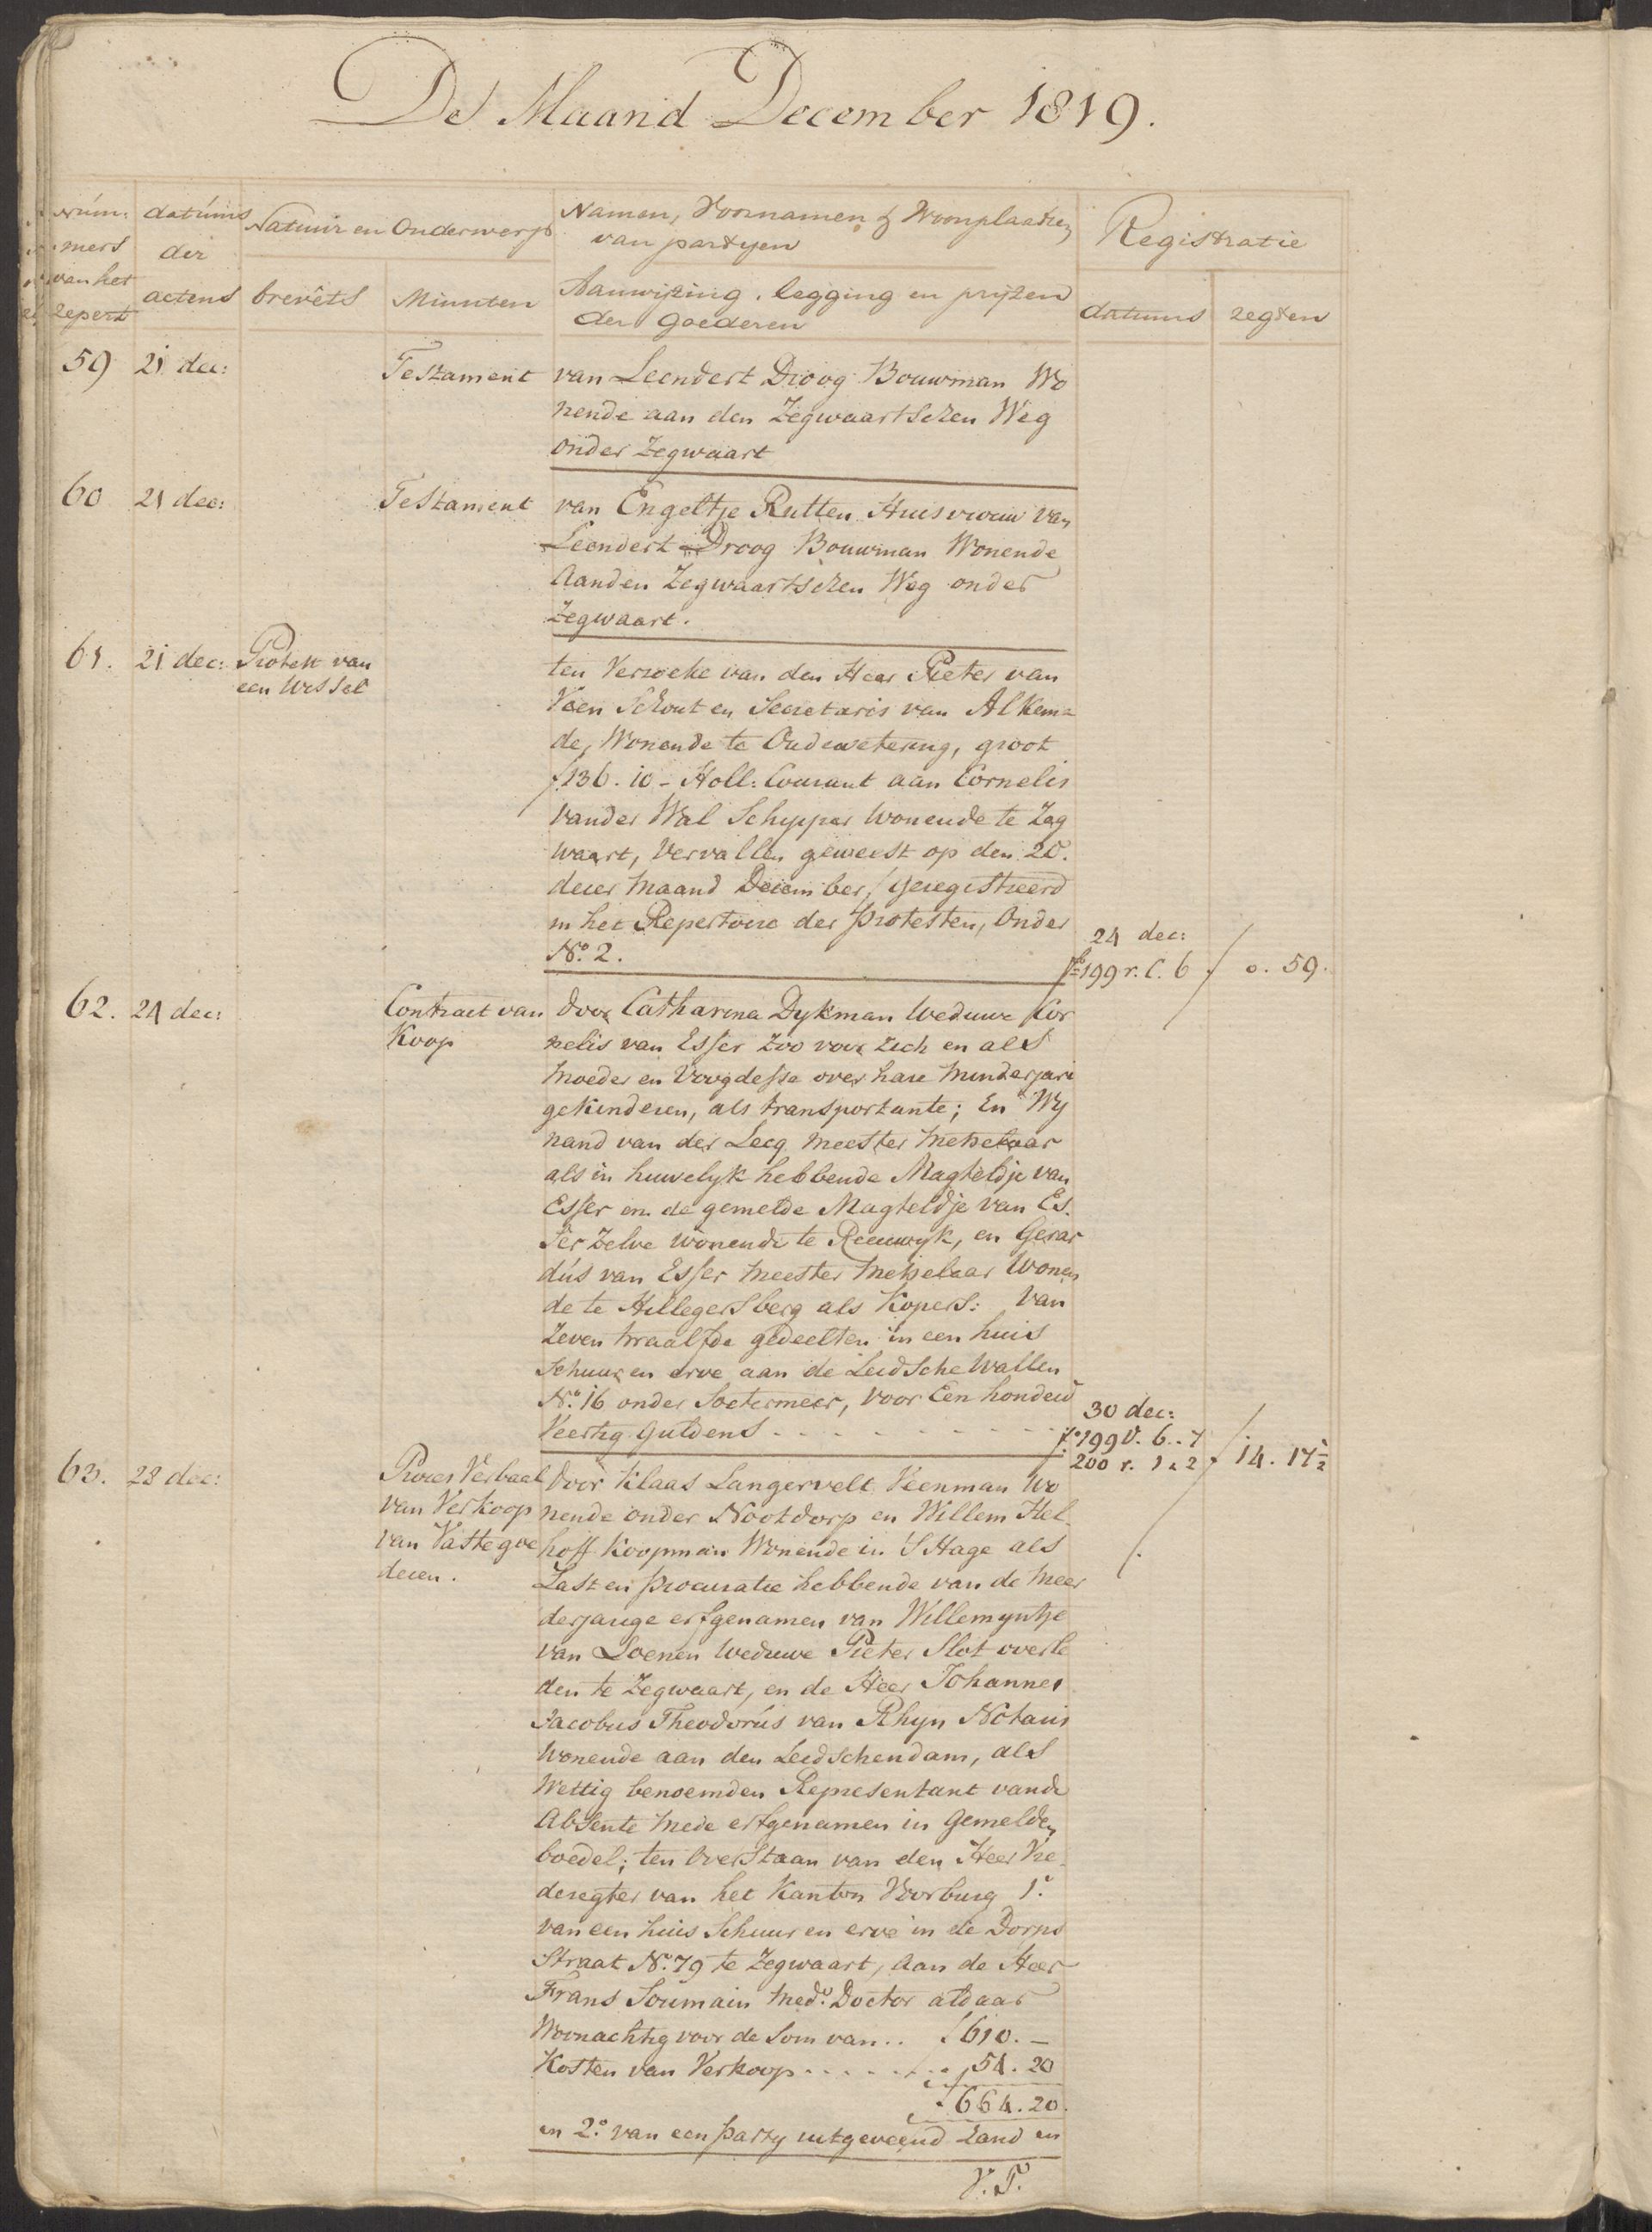 De Maand December 1819.
Num:
mers
van het
Repert
datums
der
actens
Natuur en Onderwerp
brevêts
Minuten
Namen, Voornamen & Woonplaatzen
van partyen
Aanwijzing, legging en prijzen
der Goederen
Registratie
datums
regten
59 21 dec: Testament van Leendert Droog Bouwman Wo
nende aan den Zegwaartschen Weg
onder Zegwaart
60 21 dec: Testament van Engeltje Rutten Huisvrouw van
Leendert Droog Bouwman Wonende
Aanden Zegwaartschen Weg onder
Zegwaart.
61. 21 dec: Protest van
een Wissel
ten Verzoeke van den Heer Pieter van
Veen Schout en Secretaris van Alkema
de, Wonende te Oudewetering, groot
f136.10- Holl: Courant aan Cornelis
vander Wal Schipper Wonende te Zeg
waart, Vervallen geweest op den 20.
dezer Maand December, geregistreerd
in het Repertoire der protesten, Onder
No. 2.
24 dec:
fo 199 r. C. 6 f 0. 59.
62. 24 dec: Contract van
Koop
door Catharina Dykman Weduwe Cor
nelis van Esser Zoo voor Zich en als
Moeder en Voogdesse over hare Minderjari
ge Kinderen, als transportante; En Wy
nand van der Leeg Meester Metzelaar
als in huwelyk hebbende Magteldje van
Esser en de gemelde Magteldje van Es.
ser Zelve wonende te Reeuwyk, en Gerar
dus van Esser Meester Metzelaar Wonen
de te Hillegersberg als Kopers: Van
Zeven twaalfde gedeelten in een huis
Schuur en erve aan de Leidsche Wallen
No. 16 onder Soetermeer, voor Een honderd
Veertig Guldens - - - - - - - - -
30 dec:
fo 199 V. 6..7
200 r. 1 a 2 f 14. 17½
63. 28 dec: Proces Verbaal
van Verkoop
van Vaste goe
deren.
Door Klaas Langervelt Veenman Wo
nende onder Nootdorp en Willem Hel
hoff Koopman Wonende in 'SHage als
Last en procuratie hebbende van de Meer
derjarige erfgenamen van Willemyntje
van Loenen Weduwe Pieter Slot overle
den te Zegwaart, en de Heer Johannes
Jacobus Theodorus van Rhyn Notaris
Wonende aan den Leidschendam, als
Wettig benoemden Representant vande
Absente Mede erfgenamen in Gemelden
boedel; ten Overstaan van den Heer Vre
deregter van het Kanton Voorburg 1o.
van een huis Schuur en erve in de Dorps
Straat No. 79 te Zegwaart, Aan de Heer
Frans Soumain Med: Doctor aldaar
Woonachtig voor de Som van .. f 610. -
Kosten van Verkoop - - - - - - 54. 20
f 664. 20.
en 2o. van een party uitgeveend Land en
V. T.